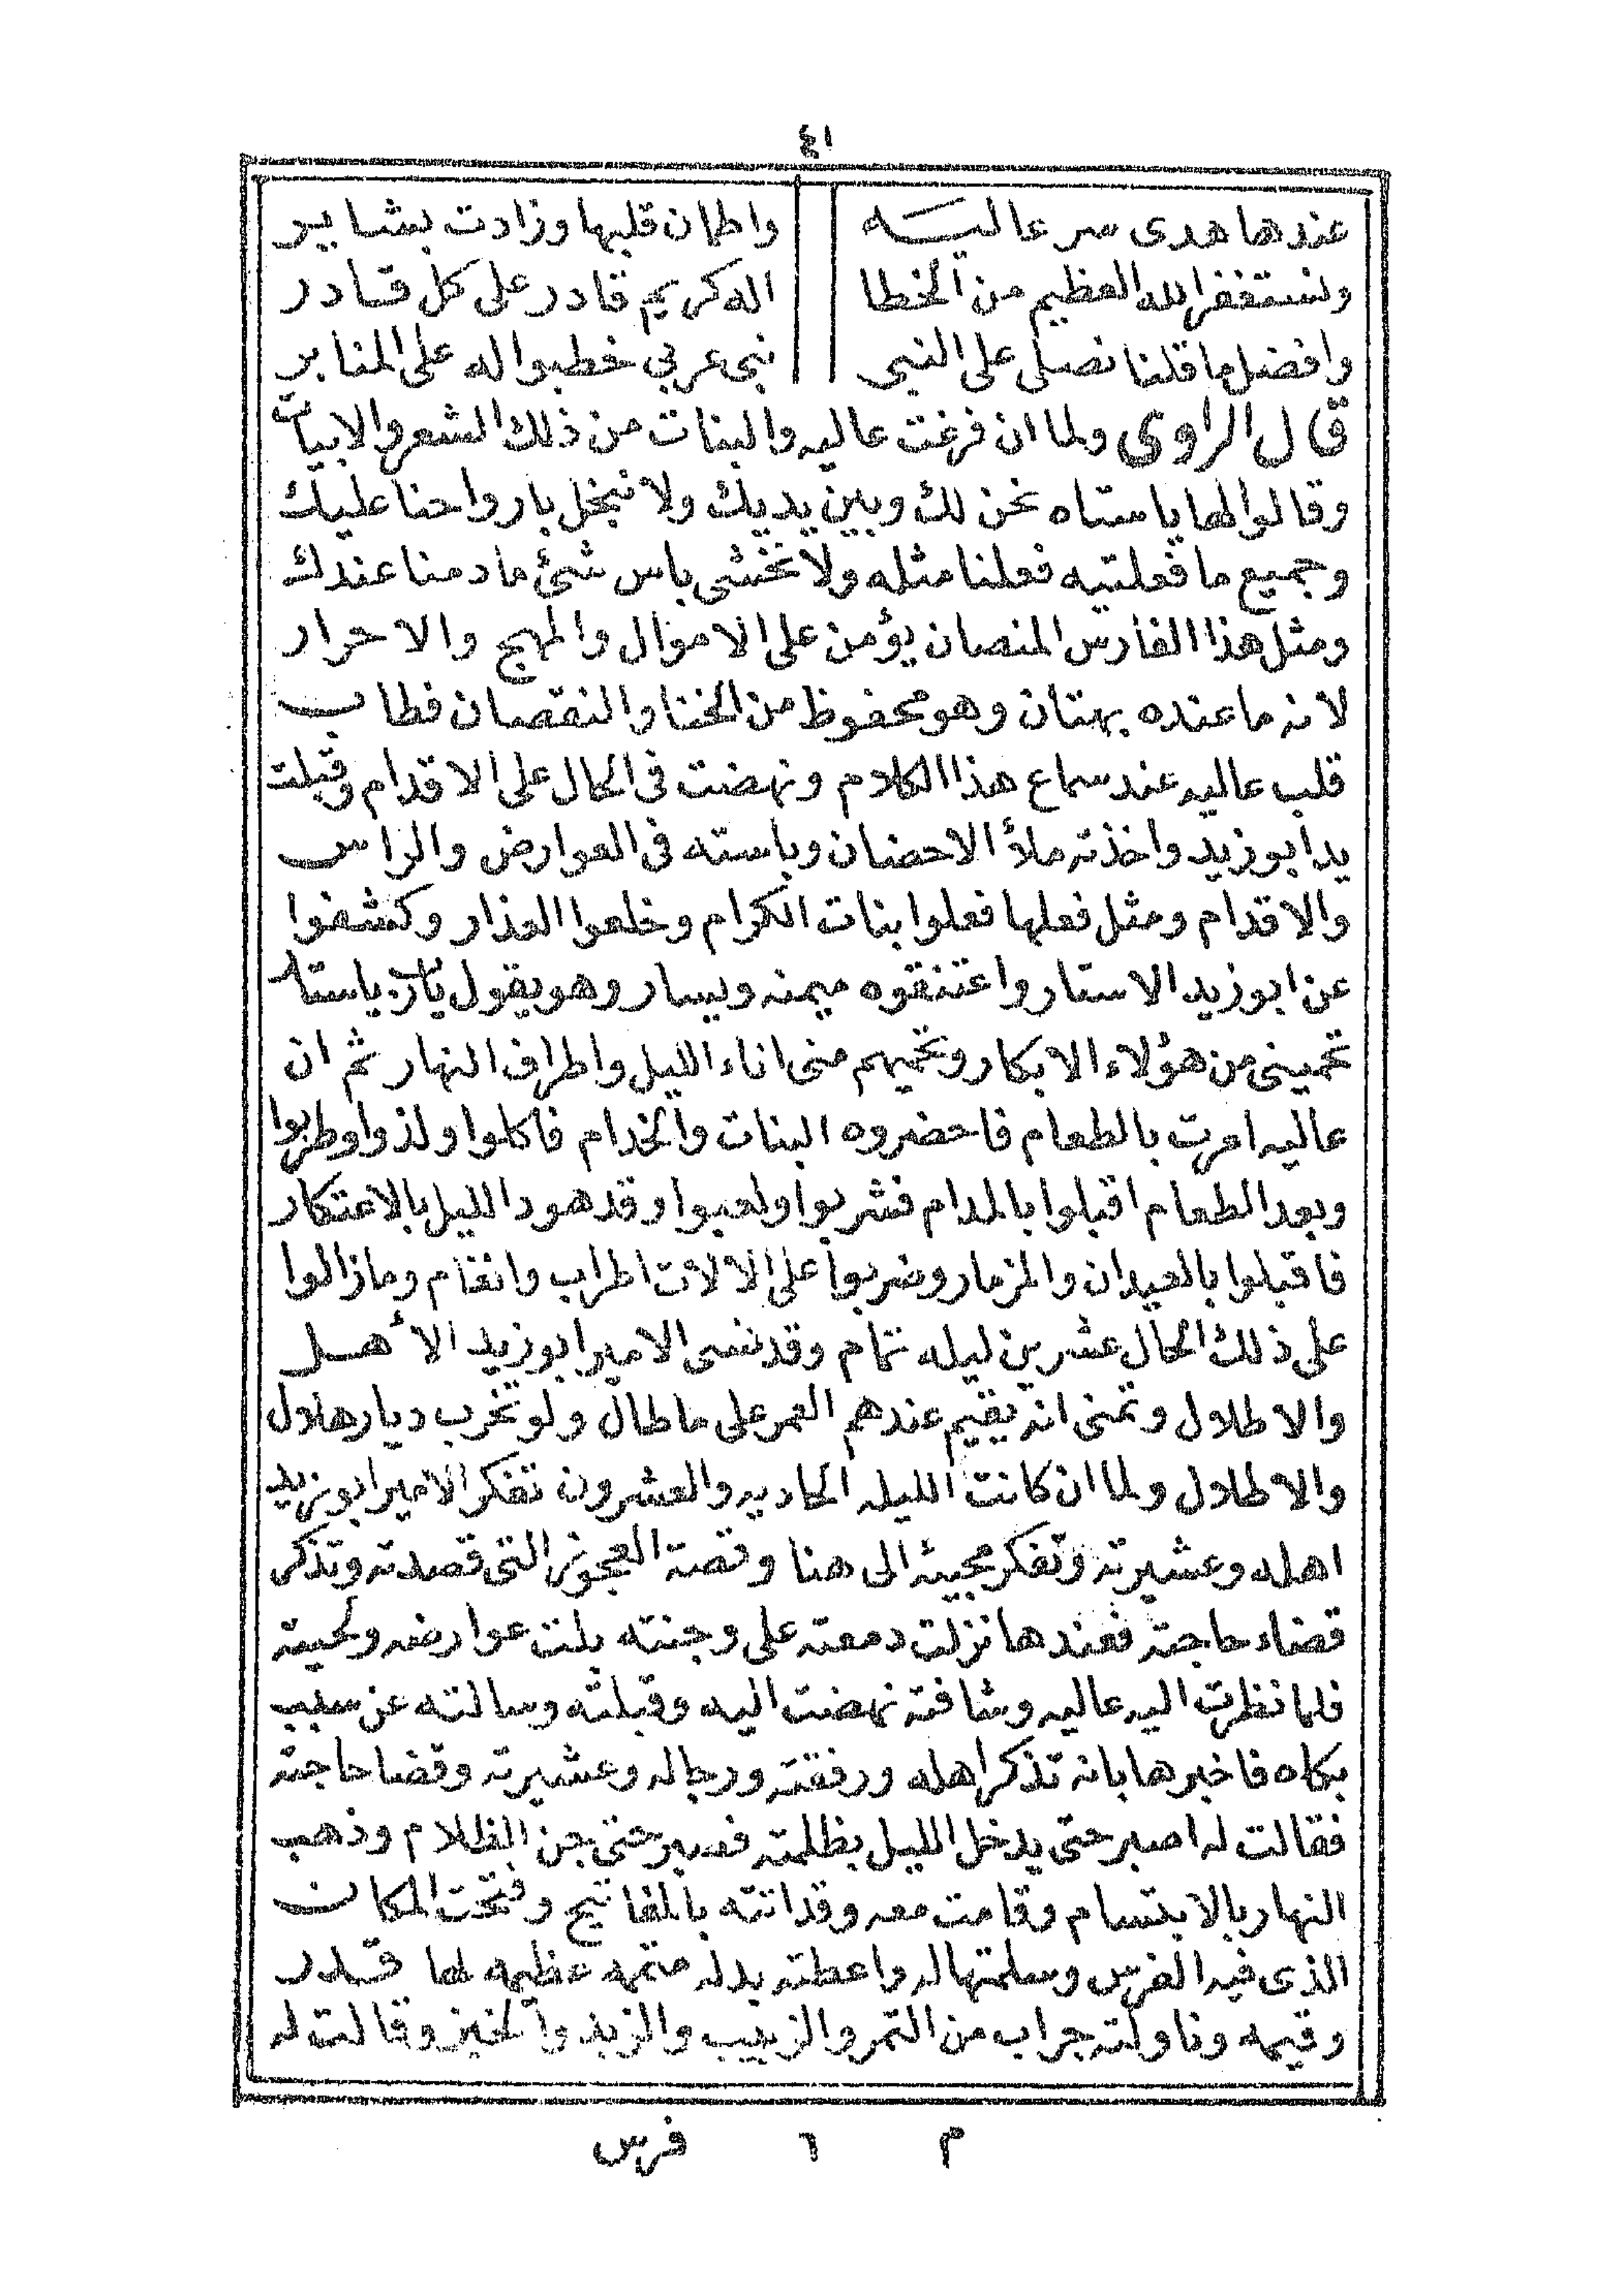 ٤١
عندها هدى سر عاليه واطمان قلبها وزادت بشاير
ونستغفر الله العظيم من الخطا اله كريم قادر على كل قادر
وافضل ما قلنا نصلى على النبى نبى عربي خطبوا له على المنابر
قال الراوى ولما ان فرغت عاليه والبنات من ذلك الشعر والابيات
وقالوا لها ياستاه نحن لك وبين يديك ولا نبخل بارواحنا عليك
وجميع ما فعلتيه فعلنا مثله ولا تخشى باس شئ ما دمنا عندك
ومثل هذا الفارس المنصان يؤمن على الاموال والمهج والاحرار
لانه ما عنده بهتان وهو محفوظ من الخنا والنقصان فطاب
قلب عاليه عند سماع هذا الكلام ونهضت فى الحال على الاقدام وقبلت
يد ابو زيد واخذته ملأ الاحضان وباسته فى العوارض والراس
والاقدام ومثل فعلها فعلوا بنات الكرام وخلعوا العذار وكشفوا
عن ابو زيد الاستار واعتنقوه ميمنه ويسار وهو يقول ياستاه
تحمينى من هؤلاء الابكار وتحميهم منى اناء الليل واطراف النهار ثم ان
عاليه امرت بالطعام فاحضروه البنات والخدام فاكلوا ولذوا وطربوا
وبعد الطعام اقبلوا بالمدام فشربوا ولعبوا وقد هود الليل بالاعتكار
فاقبلوا بالعيدان والمزمار وضربوا على الالات اطراب وانغام ومازالوا
على ذلك الحال عشرين ليله تمام وقد نسى الامير ابو زيد الأهل
والاطلال وتمنى انه يقيم عندهم العمر على ما طال ولو تخرب ديار هلال
والاطلال ولما ان كانت الليله الحاديه والعشرون تفكر الامير ابو زيد
اهله وعشيرته وتفكر مجيئه الى هنا وقصة العجوز التى قصدته وتذكر
قضاء حاجته فعندها نزلت دمعته على وجنته بلت عوارضه ولحيته
فلما نظرت اليه عاليه وشافته نهضت اليه وقبلته وسالته عن سبب
بكاه فاخبرها بانه تذكر اهله ورفقته ورجاله وعشيرته وقضا حاجته
فقالت له اصبر حتى يدخل الليل بظلمته فصبر حتى جن الظلام وذهب
النهار بالابتسام وقامت معه وقد اتته بالمفاتيح وفتحت المكان
الذى فيه الفرس وسلمتها له واعطته بدله متمه عظيمه لها قدر
وقيمه وناولته جراب من التمر والزبيب والزبد والخبز وقالت له
م ٦ فرس